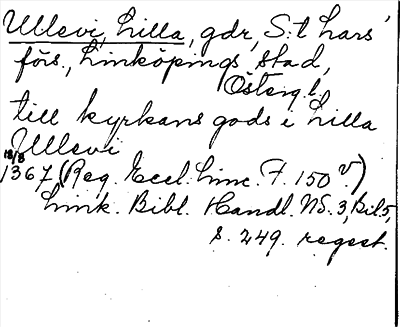 Ullevi, Lilla, gdr, S:t Lars'
förs., Linköpings stad,
Österg.l.
till kyrkans gods i Lilla
Ullevi
18/8
1367 (Reg. Eccl. Linc. F. 150 v.)
Link. Bibl. Handl. NS. 3, Bil 5,
s. 249. regest.